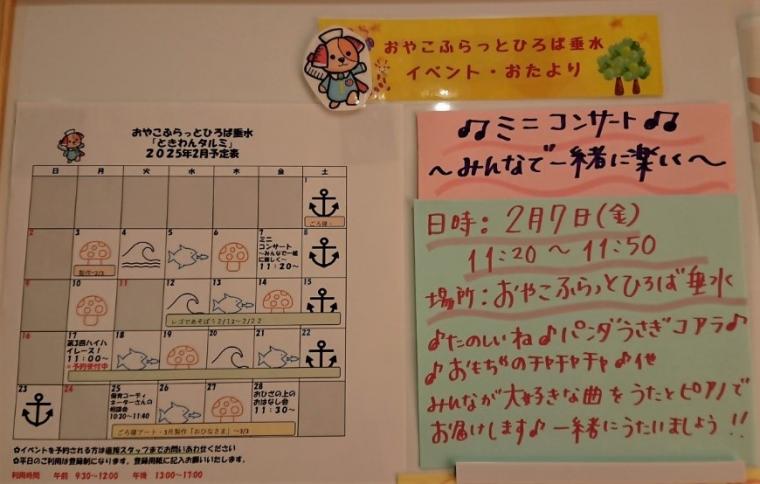 おやこふらっとひろば垂水
イベント・おたより
おやこふらっとひろば垂水
「ときわんタルミ」
2025年2月予定表
日 月 火 水 木 金 土
1
2 3 4 5 6 7 8
ミニ
コンサート
~みんなで一緒
に楽しく~
11:20~
9 10 11 12 13 14 15
レゴであそぼ!2/12~2/22
16 17 18 19 20 21 22
第3回ハイハイ
レース!
11:00~
*予約受付中
23 24 25 26 27 28
保育コーディ
ネーターさんの
相談会
10:30~11:40
おひざの上の
おはなし会
11:30~
ごろ寝アート・3月製作「おひなさま」~3/3
✿イベントを予約される方は直接スタッフまでお問いあわせください
✿平日のご利用は登録制になります。登録用紙に記入お願いいたします。
利用時間 午前 9:30~12:00 午後 13:00~17:00
♫ミニコンサート♫
~みんなで一緒に楽しく~
日時:2月7日(金)
11:20~11:50
場所:おやこふらっとひろば垂水
♪たのしいね♪パンダうさぎコアラ♪
♪おもちゃのチャチャチャ♪他
みんなが大好きな曲をうたとピアノで
お届けします♪一緒にうたいましょう!!